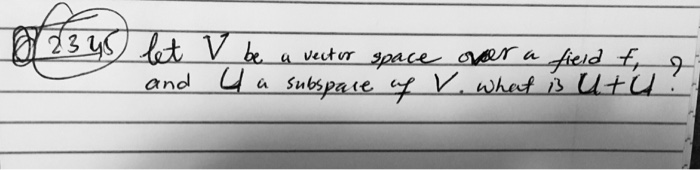 2345) let V be a vector space over a field f,
and U a subspace of V. what is U+U?